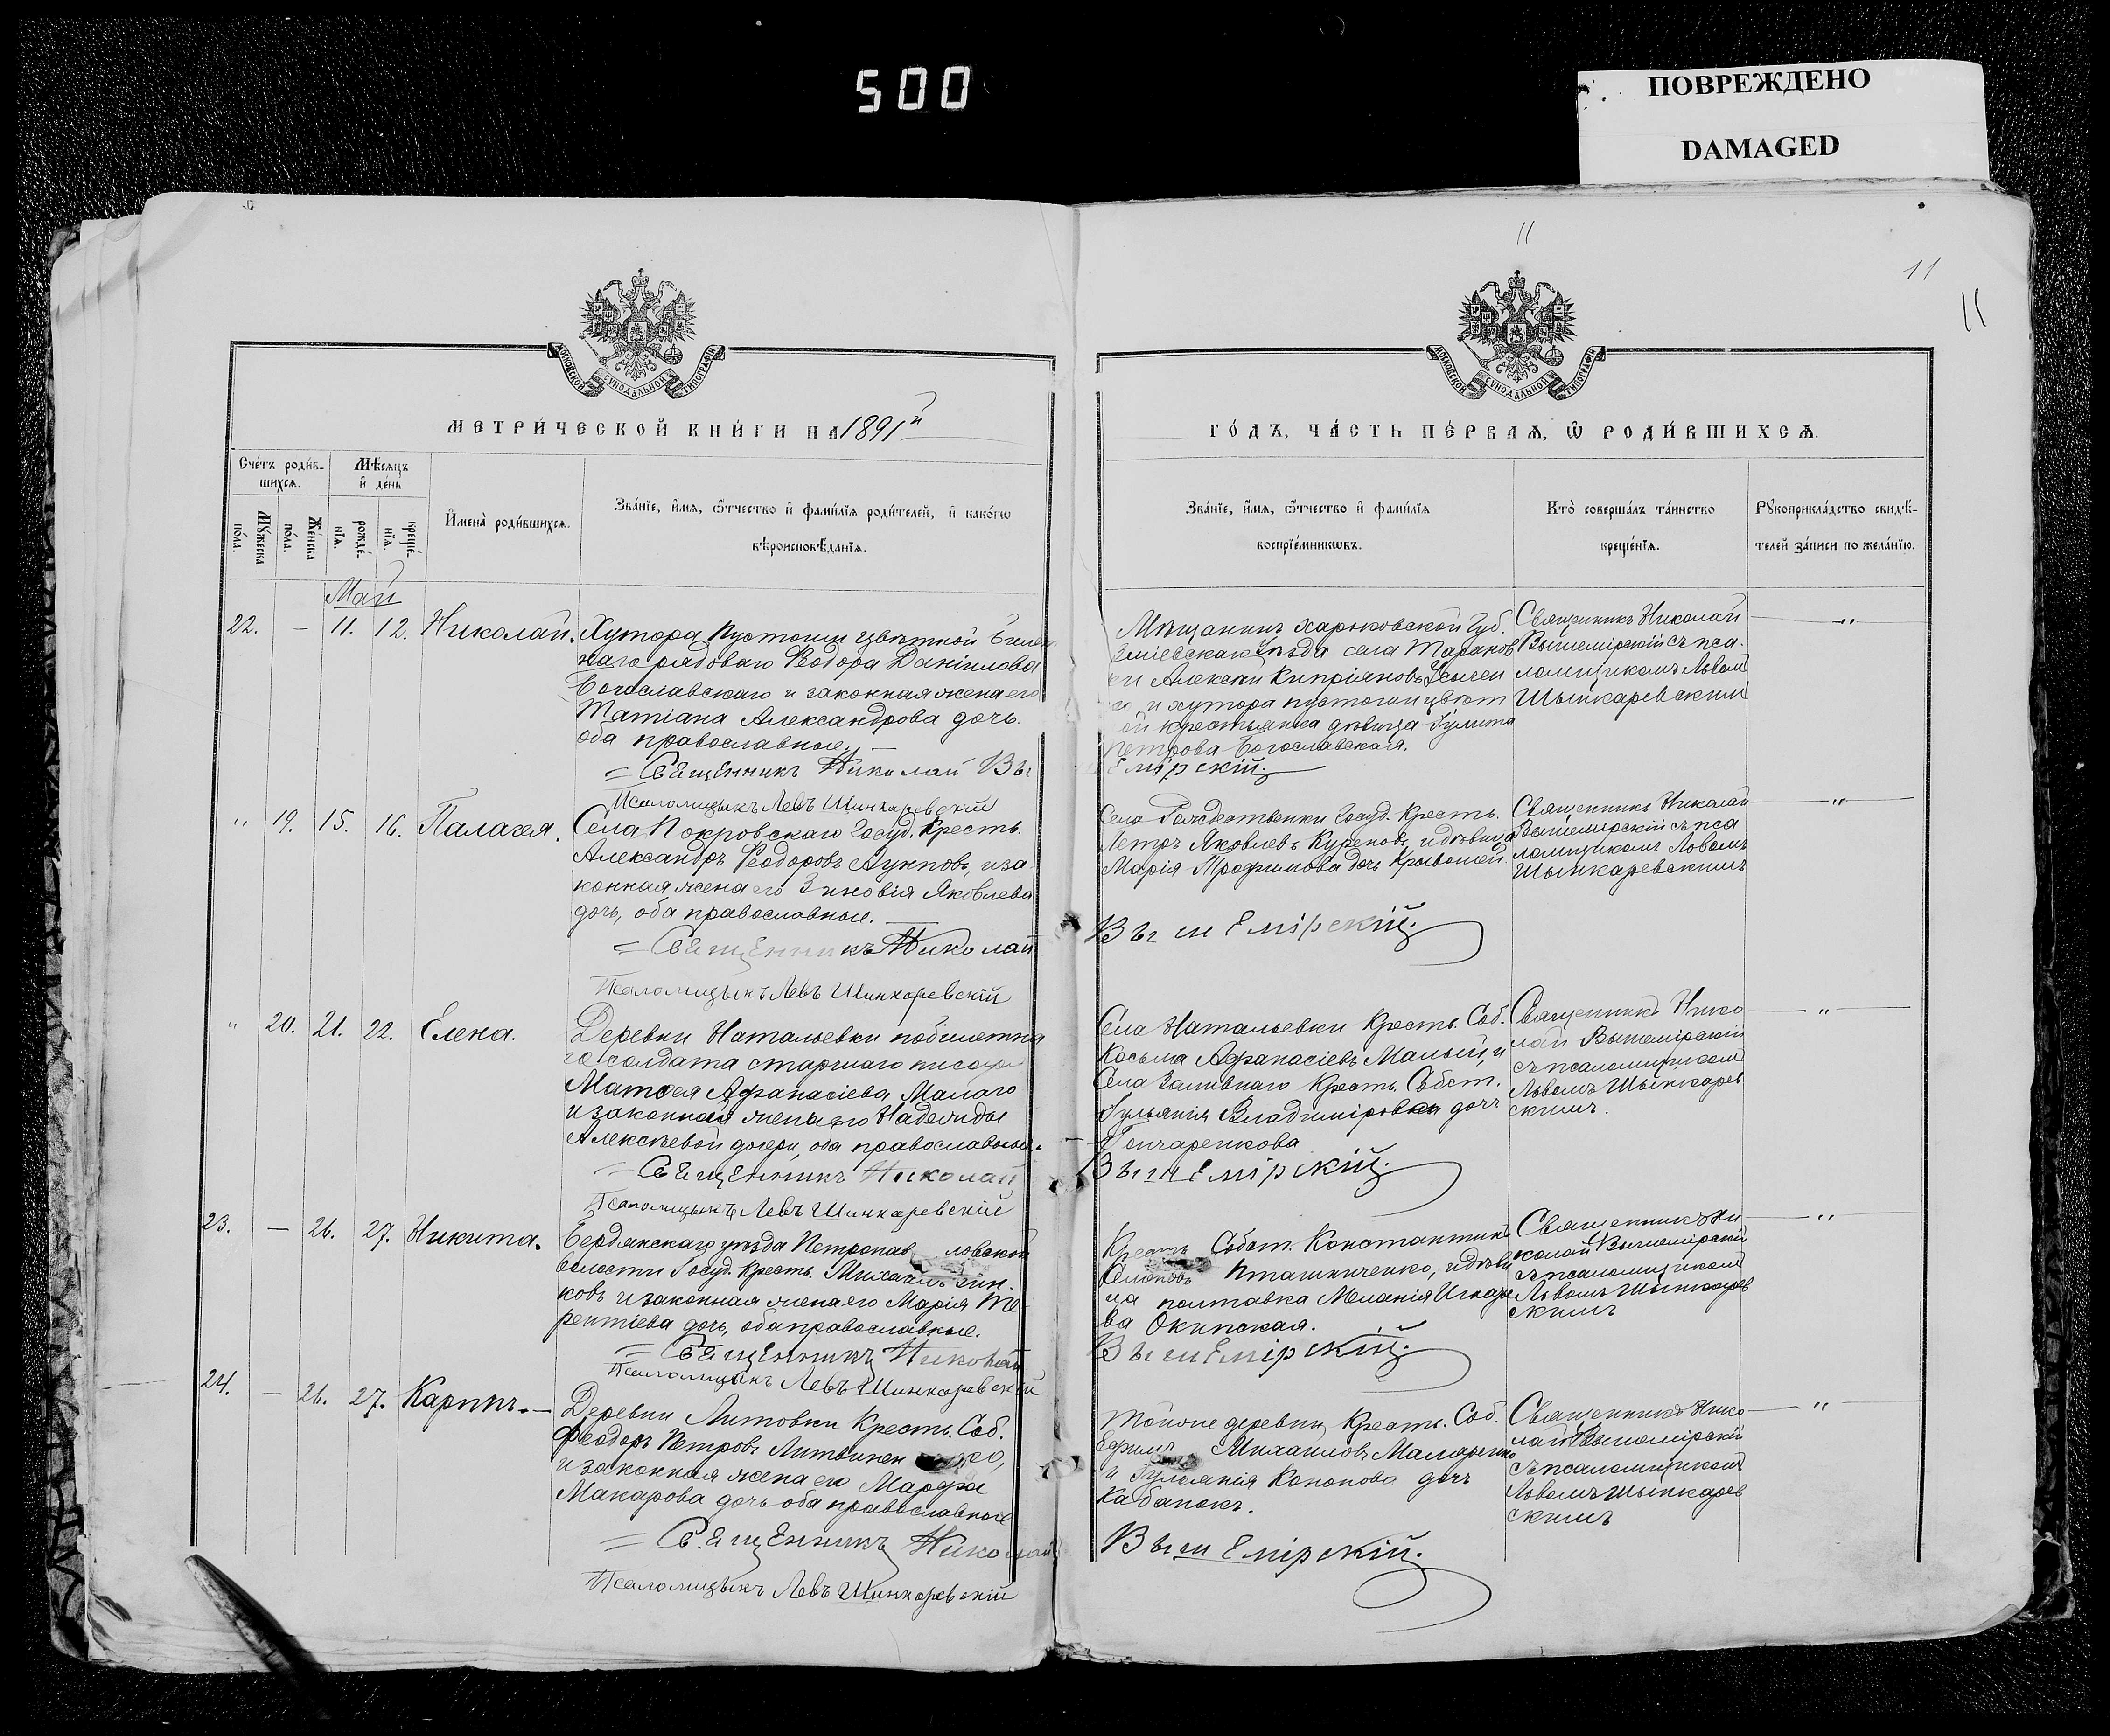 500
ПОВРЕЖДЕНО
DAMAGED
11
11
11
МОСКОВСКОЙ СѴНОДАЛЬНОЙ ТИПОГРАФІИ
МОСКОВСКОЙ СѴНОДАЛЬНОЙ ТИПОГРАФІИ
МЕТРИ́ЧЕСКОЙ КНИ́ГИ НА 1891й
ГО́ДЪ, ЧА́СТЬ ПЕ́РВАѦ, Ѽ РОДИ́ВШИХСѦ.
Сче́тъ роди́в-
шихсѧ.
Мѣ́сѧцъ
и҆ де́нь
Мꙋ́жеска
по́ла.
Же́нска
по́ла.
рожде́-
нїѧ.
креще́-
нїѧ.
И҆мена̀ роди́вшихсѧ.
Зва́нїе, и҆́мѧ, ѻ҆́тчество и҆ фами́лїѧ роди́телей, и҆ како́гѡ
вѣроисповѣ́данїѧ.
Зва́нїе, и҆́мѧ, ѻ҆́тчество и҆ фами́лїѧ
воспрїе́мникѡвъ.
Кто̀ соверша́лъ та́инство
креще́нїѧ.
Рꙋкоприкла́дство свидѣ́-
телей за́писи по жела́нїю.
Май
22. — 11. 12. Николай.
Хутора Пустоши Цвѣтной
наго рядоваго Ѳеодора Даніилова
Богославскаго и законная жена его
Татіана Александрова дочь.
оба православные. —
= Священникъ Николай Вы
Псаломщикъ Левъ Шинкаревскій
Мѣщанинъ Харьковской Губ.
Зміевскаго уѣзда села Таранов
ки Алексѣй Кипріяновъ
и хутора пустоши цвѣт
ой крестьянка дѣвица Іулита
Петрова Богославская.
шемірскій.
Священникъ Николай
Вышемірскій съ пса.
ломщикомъ Львомъ
Шынкаревскимъ
"
" 19. 15. 16. Палагея.
Села Покровскаго Госуд. Кресть.
Александръ Ѳеодоровъ и за
конная жена его Зиновія Яковлева
дочь, оба православные.
= Священникъ Николай
Псаломщыкъ Левъ Шинкаревскій
Села Рождественки Госуд. Кресть.
Петръ Яковлевъ Куреновъ, и дѣвица
Марія Трофимова дочь Кривошей.
Вышемірскій.
Священникъ Николай
Вышемірскій съ пса
ломщикомъ Львомъ
Шынкаревскимъ
"
" 20. 21. 22. Елена.
Деревни Натальевки побилетна
го солдата старшаго писаря
Матѳея Афанасіева Малаго
и законная жена его Надежды
Алексѣевой дочери, оба православные.
= Священникъ Николай
Псаломщыкъ Левъ Шинкаревскій
Села Натальевки Кресть. Соб.
Косьма Афанасіевъ Малый, и
Села Заливнаго Кресть. Собст.
Іульянія Владиміровна дочь
Гончаренкова
Вышемірскій.
Священникъ Нико
лай Вышемірскій
съ псаломщикомъ
Львомъ Шынкарев
скимъ.
"
23. — 26. 27. Никита.
Бердянскаго уѣзда Петропав ловской
волости Госуд. Кресть. Михаилъ
ковъ и законная жена его Марія Те
рентіева дочь, оба православные.
= Священникъ Николай
Псаломщыкъ Левъ Шинкаревскій
Кресть. Собст. Константинъ
Пташниченко, и дѣви
ца полтавка Меланія
ва Окипская.
Вышемірскій.
Священникъ Ни
колай Вышемірскій
съ псаломщикомъ
Львомъ Шынкарев
скимъ
"
24. — 26. 27. Карпъ. —
Деревни Литовки Кресть. Соб.
Ѳеодоръ Петровъ Литвинен ко,
и законная жена его Марфа
Макарова дочь оба православные
= Священникъ Николай
Псаломщыкъ Левъ Шинкаревскій
Тойоже деревни Кресть. Соб.
Ефимъ Михаиловъ Маларенко
и Іульянія Кононова дочь
Кабанокъ.
Вышемірскій.
Священникъ Нико
лай Вышемірскій
съ псаломщикомъ
Львомъ Шынкарев
скимъ
"